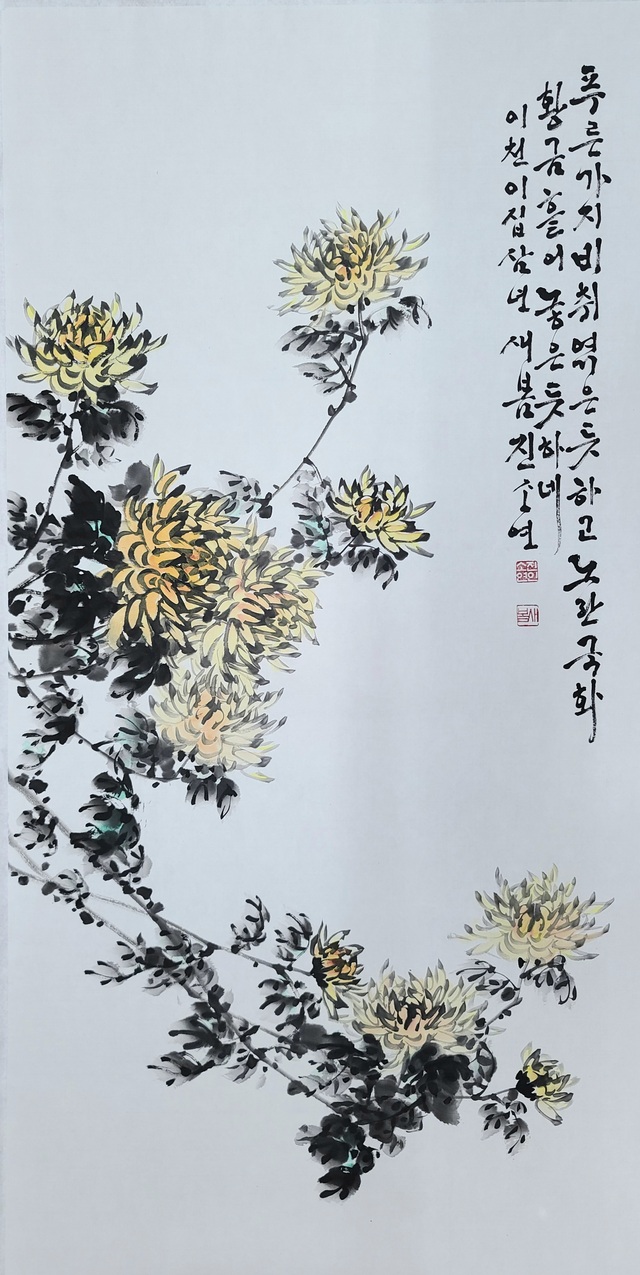 푸른가지비취엮은듯하고노란국화
황금흩어놓은듯하네
이천이집삼년새봄진순연
새봄